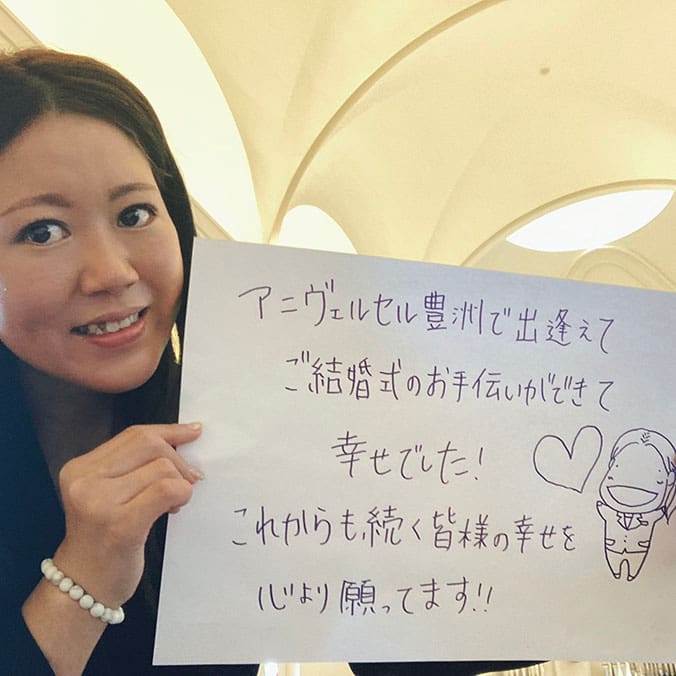 アニヴェルセル豊洲で出逢えて
ご結婚式のお手伝いができて
幸せでした!
これからも続く皆様の幸せを
心より願ってます!!